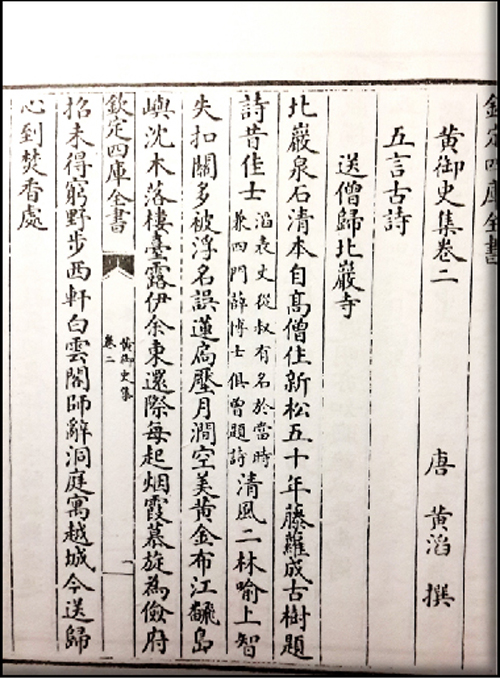 欽定四庫全書
黄御史集卷二 唐 黄滔 撰
五言古詩
送僧歸北巖寺
北巖泉石清本自高僧住新松五十年藤蘿成古樹題
詩昔佳士滔表史從叔有名於當時兼四門薛博士俱曾題詩清風二林喻上智
失扣關多被浮名誤蓮扃壓月澗空美黄金布江翻島
嶼沈木落樓臺露伊余東還際每起烟霞慕旋為儉府
欽定四庫全書
黄御史集
卷二
一
招未得窮野步西軒白雲閣師辭洞庭寓越城今送歸
心到焚香處